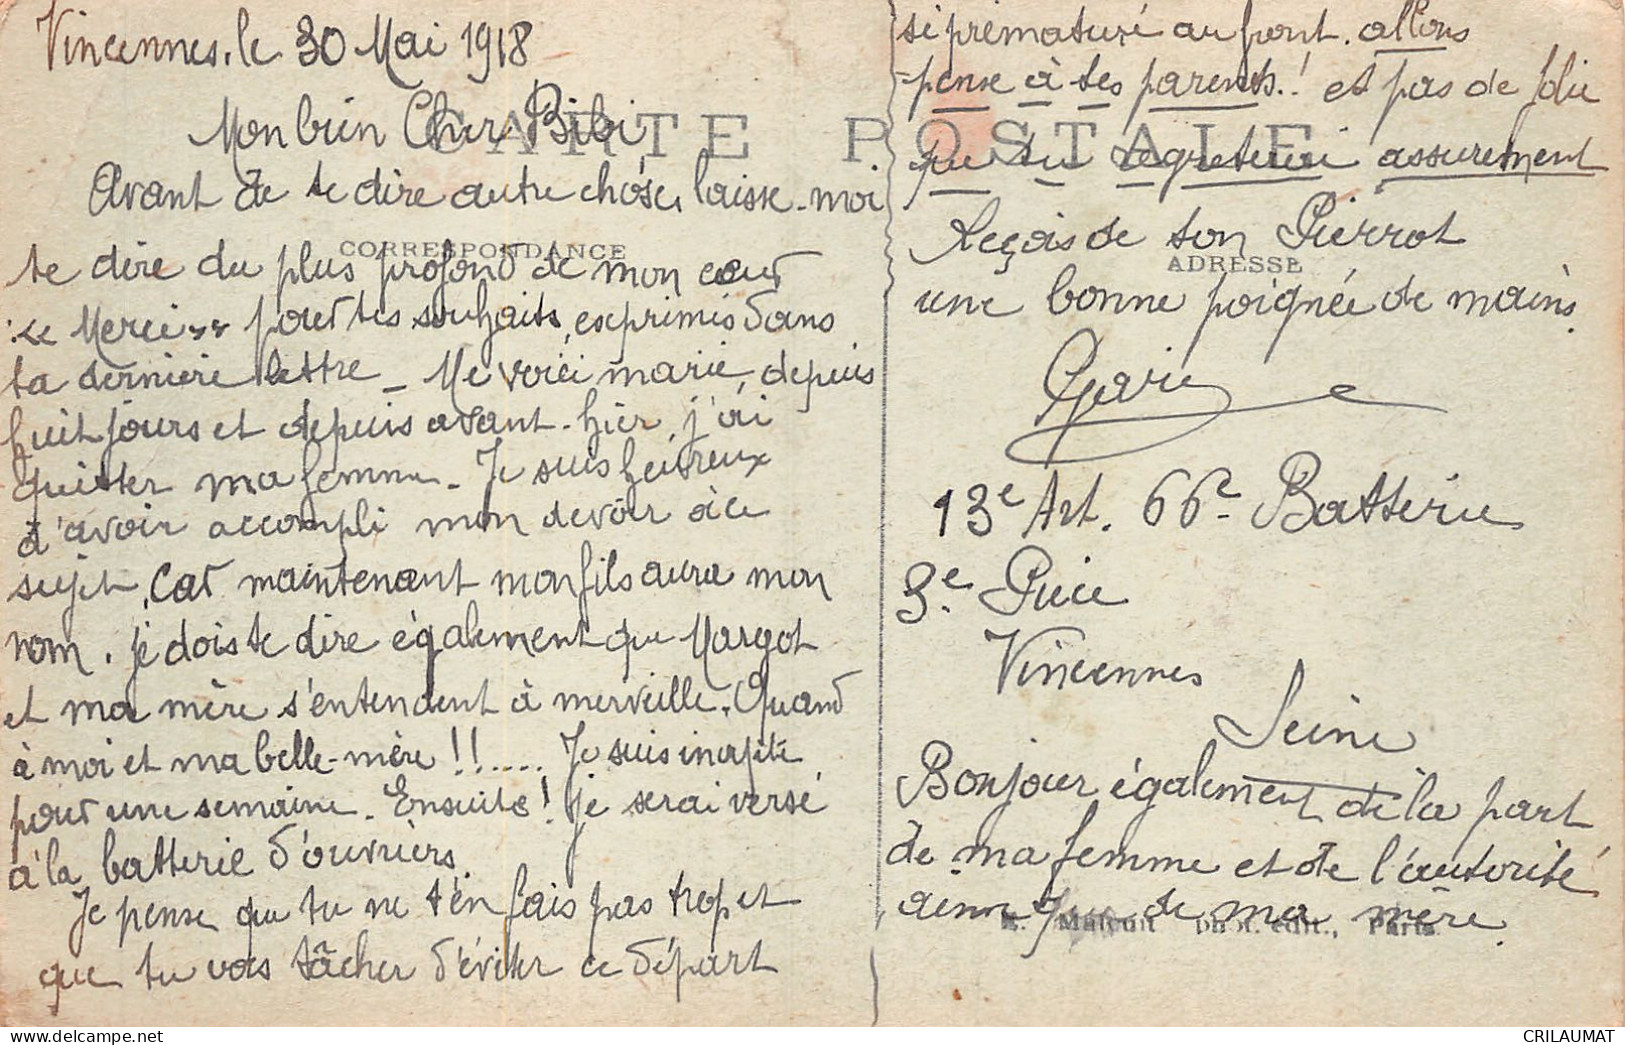 Vincennes, le 30 Mai 1918
Mon bien Cher Bibi,
CARTE POSTALE
Avant de te dire autre chose, laisse-moi
CORRESPONDANCE
te dire du plus profond de mon coeur
"Merci" pour tes souhaits, exprimés dans
ta dernière lettre - Me voici marié, depuis
huit jours et depuis avant-hier, j'ai
quitter ma femme. Je suis heureux
d'avoir accompli mon devoir à ce
sujet, car maintenant mon fils aura mon
nom. je dois te dire également que Margot
et ma mère s'entendent à merveille. Quand
à moi et ma belle-mère !!..... Je suis inapte
pour une semaine. Ensuite! je serai versé
à la batterie d'ouvriers.
Je pense que tu ne t'en fais pas trop et
que tu vas tâcher d'éviter ce départ
si prématuré au front. allons
pense à tes parents! et pas de folie
que tu regretterai assurement
Reçois de ton Pierrot
ADRESSE
une bonne poignée de mains.
13e Art. 66e Batterie
3e Pièce
Vincennes
Seine
Bonjour également de la part
de ma femme et de l'autorité
ainsi que de ma mère.
Phot. édit., Paris